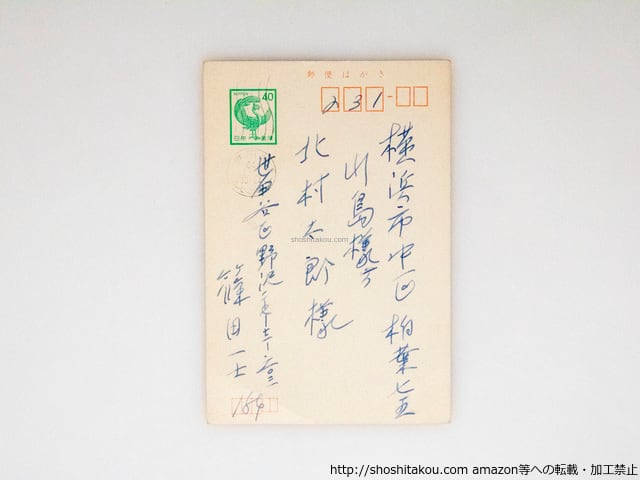 郵便はがき
NIPPON
40
日本郵便
231-
横浜市中区柏葉七五
川島様方
北村太郎様
世田谷区野沢
篠田一士
154
shoshitakou.com
http://shoshitakou.com amazon等への転載・加工禁止